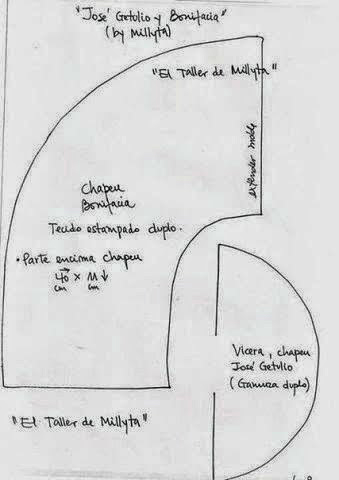 "José Getulio y Bonifacia"
(by Millyta)
"El Taller de Millyta"
extender molde
Chapeu
Bonifacia
Tecido estampado duplo.
• Parte encima chapeu
40 x 11 ↓
cm cm
Vicera, chapeu
José Getulio
(Gamuza duplo)
"El Taller de Millyta"